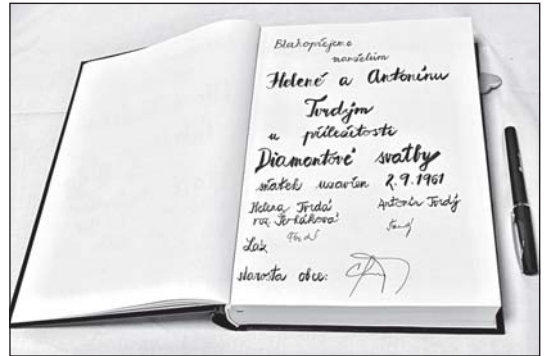 Blahopřejeme
manželům
Heleně a Antonínu
Tvrdým
u příležitosti
Diamantové svatby
sňatek uzavřen 2.9.1961
Helena Tvrdá Antonín Tvrdý
roz.
Tvrdá Tvrdý
Laz
starosta obce: